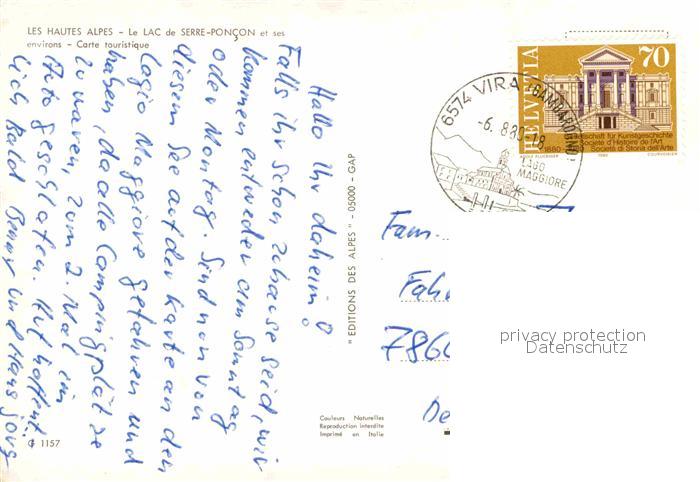 LES HAUTES ALPES - Le LAC de SERRE-PONÇON et ses
environs - Carte touristique
Hallo Ihr daheim!
Falls ihr schon zuhause seid, wir
kommen entweder am Sonntag
oder Montag. Sind nun von
diesem See auf der Karte an den
Lagio Maggiore gefahren und
haben, da alle Campingplätze
zu waren, zum 2. Mal im
Auto geschlafen. Gut hoffent
lich Bald Benny und Hansjörg
G 1157
"EDITIONS DES ALPES" - 05000 - GAP
Couleurs Naturelles
Reproduction interdite
Imprimé en Italie
6574 VIRA (GAMBAROGNO)
-6. 8.80-18
LAGO
MAGGIORE
HELVETIA
70
Gesellschaft für Kunstgeschichte
Société d'Histoire de l'Art
Società di Storia dell'Arte
1880
1980
COURVOISIER
Fam.
Fah
7860
De
privacy protection
Datenschutz